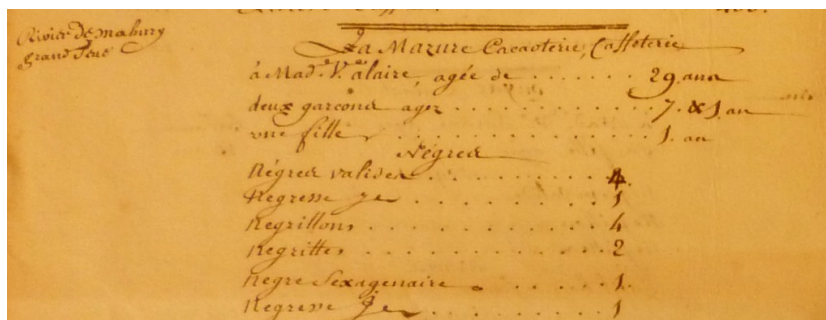 Rivier de mahury
grand Pont
La Mazure Cacaoterie, Caffeterie
à Mad.e V.e alaire, agée de . . . . . . . 29. ans
deux garçons agez . . . . . . . . . . . . 7. & 1. an
une fille . . . . . . . . . . . . . 1. an
Négres
Négres valides . . . . . . . . . . 4.
Negresse . . . . . . . . . . . 1
Negrillons . . . . . . . . . . . 4
Negrittes . . . . . . . . . . . 2
Negre Sexagenaire . . . . . . 1.
. . . . . . . . . . 1